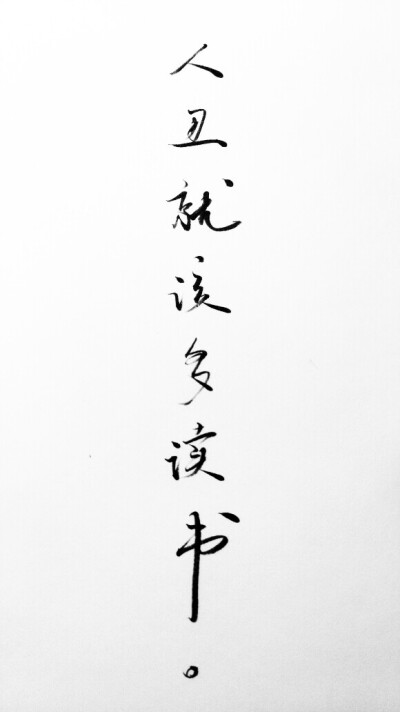 人丑就该多读书。